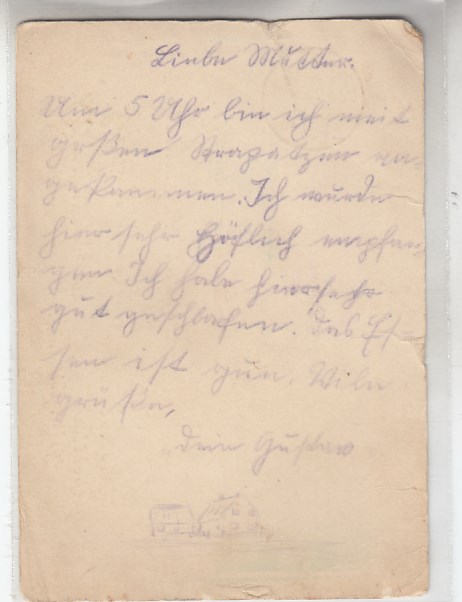 Liebe Mutter.
Um 5 Uhr bin ich mit
großen Strapatzen an-
gekommen. Ich wurde
hier sehr Höflich empfan-
gen Ich habe hier sehr
gut geschlafen. Das Es-
sen ist gut. Viele
grüße,
Dein Gustav